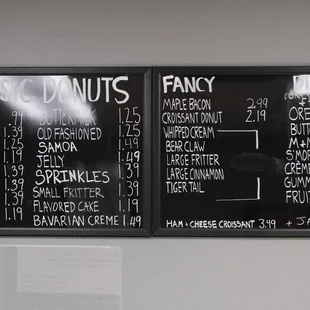 SIC DONUTS
.99 BUTTERMILK 1.25
1.39 OLD FASHIONED 1.25
1.39 SAMOA 1.49
1.19 JELLY 1.49
1.39 SPRINKLES 1.39
1.39 SMALL FRITTER 1.39
1.39 FLAVORED CAKE 1.19
1.19 BAVARIAN CREME 1.49
FANCY
MAPLE BACON 2.99
CROISSANT DONUT 2.19
WHIPPED CREAM
BEAR CLAW
LARGE FRITTER
LARGE CINNAMON
TIGER TAIL
HAM & CHEESE CROISSANT 3.49
OREO
BUTT
M+M
S'MOR
CRÈME
GUMM
FRUIT
+ JA